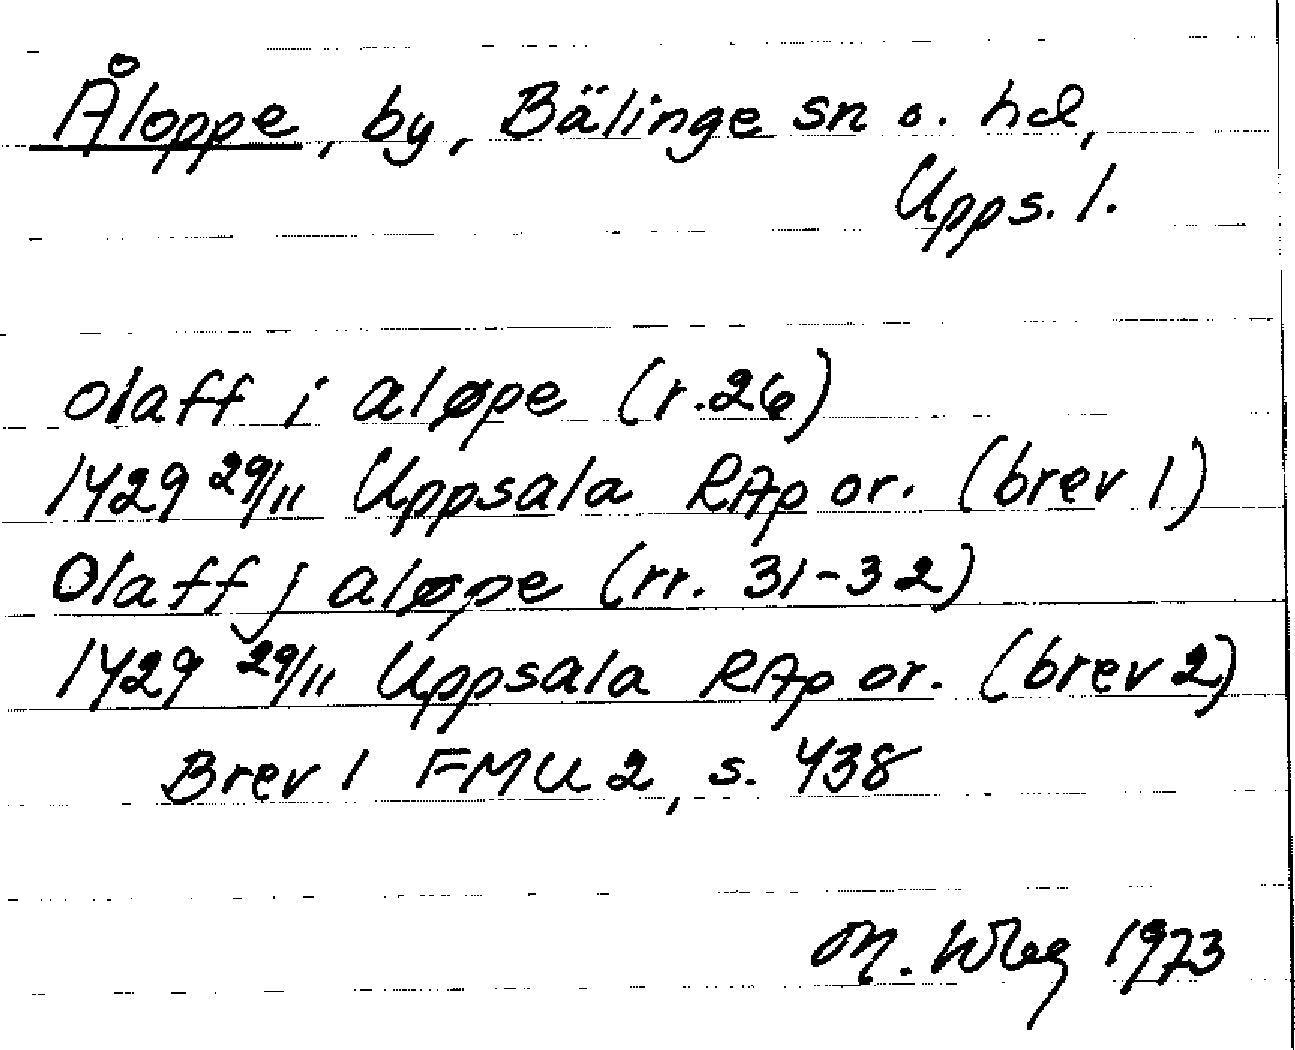 Åloppe, by, Bälinge sn o. hd,
Upps. l.
olaff i aløpe (r.26)
1429 29/11 Uppsala RAp or. (brev 1)
Olaff j aløpe (rr. 31-32)
1429 29/11 Uppsala RAp or. (brev 2)
Brev 1 FMU 2, s. 438
M. Wbg 1973